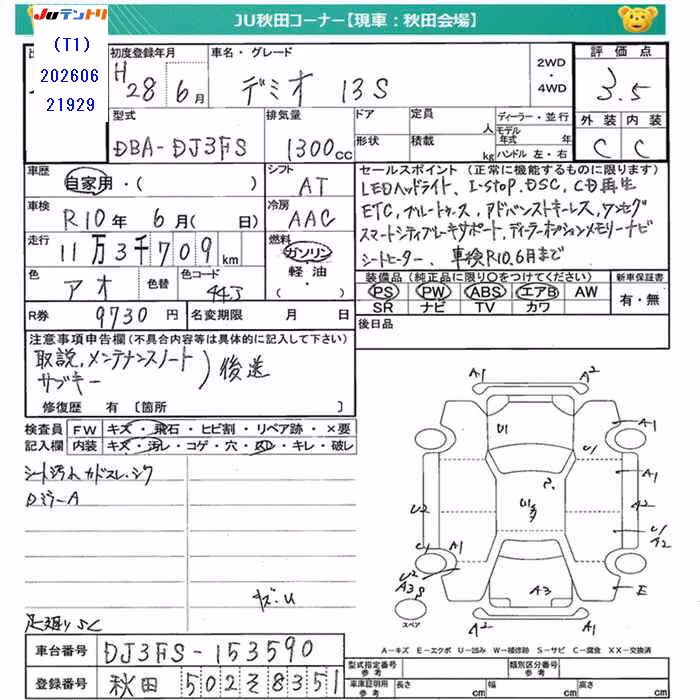 Juテントリ
JU秋田コーナー【現車：秋田会場】
(T1)
202606
21929
初度登録年月 車名・グレード 2WD・4WD 評価点
H28 6月 デミオ 13S 3.5
型式 排気量 ドア 定員 人 ディーラー・並行 外装 内装
DBA-DJ3FS 1300cc 形状 積載 kg モデル年式 年 ハンドル 左・右 C C
車歴 自家用・( ) シフト AT
セールスポイント (正常に機能するものに限ります)
LEDヘッドライト、I-STOP、DSC、CD再生
車検 R10年 6月( 日) 冷房 AAC
ETC、ブルートゥース、アドバンストキーレス、ワンセグ
走行 11万3千709km 燃料 ガソリン・軽油・( )
スマートシティブレーキサポート、ディーラーオプションメモリーナビ
シートヒーター、車検R10.6月まで
色 アオ 色替 色コード 44J
装備品 (純正品に限り○をつけてください) 新車保証書
PS PW ABS エアB AW 有・無
SR ナビ TV カワ
R券 9730円 名変期限 月 日
後日品
注意事項申告欄 (不具合内容等は具体的に記入して下さい)
取説、メンテナンスノート
サブキー ) 後送
修復歴 有 〔箇所 〕
検査員 FW キズ・飛石・ヒビ割・リペア跡・×要
記入欄 内装 キズ・汚レ・コゲ・穴・スレ・キレ・破レ
シート汚れ
Dミラー A
キズ・U
足廻りSC
A1 A2
U1 A1
U1 A1
U1 A2
U2 U1 A2
A1
U2 A3S
A3 E
A2 A1
スペア
A-キズ E-エクボ U-凹み W-補修跡 S-サビ C-腐食 XX-交換済
車台番号 DJ3FS-153590
型式指定番号 類別区分番号
参考
登録番号 秋田 502 そ 8351
車庫証明用 参考 長さ cm 幅 cm 高さ cm